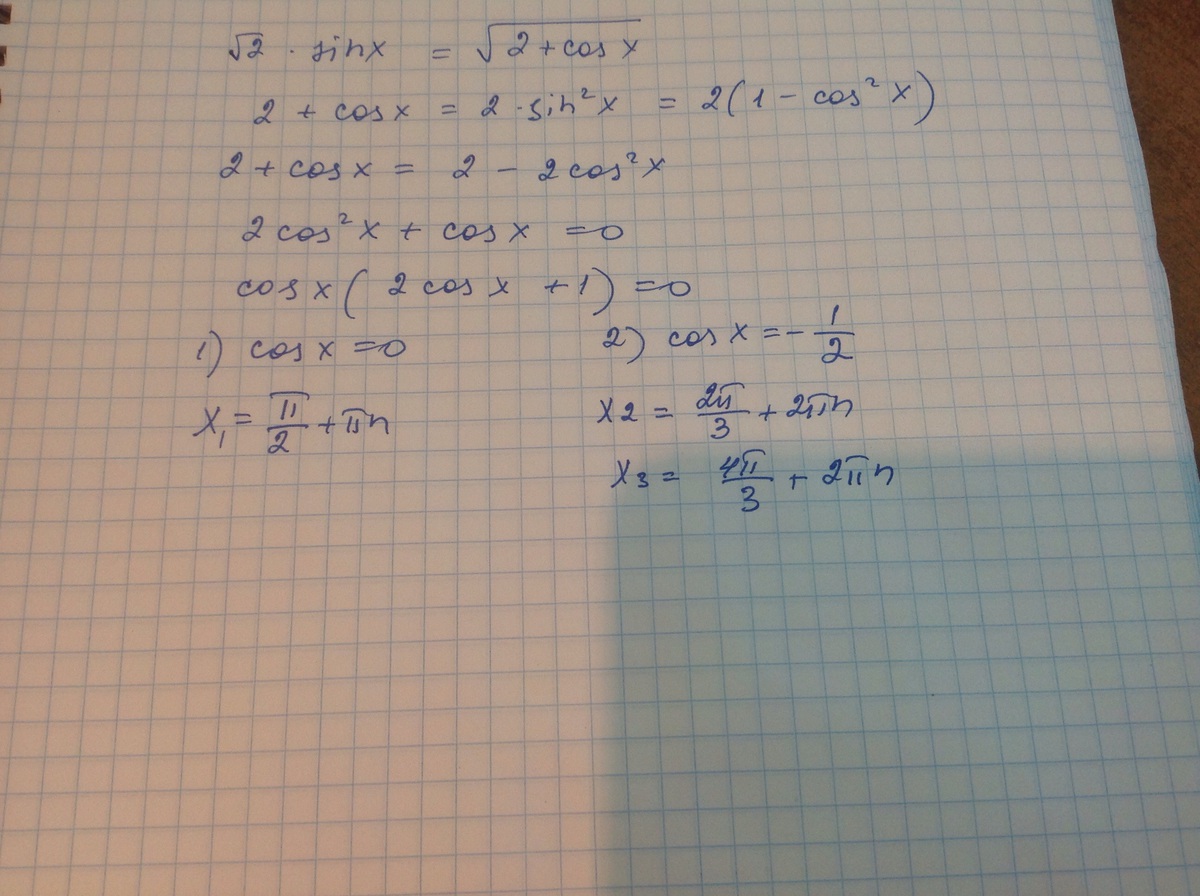 √2 · sinx = √(2 + cos x)
2 + cosx = 2 · sin²x = 2(1 - cos²x)
2 + cosx = 2 - 2cos²x
2cos²x + cosx = 0
cosx(2cosx + 1) = 0
1) cosx = 0
2) cosx = -1/2
x₁ = π/2 + πn
x2 = 2π/3 + 2πn
x3 = 4π/3 + 2πn